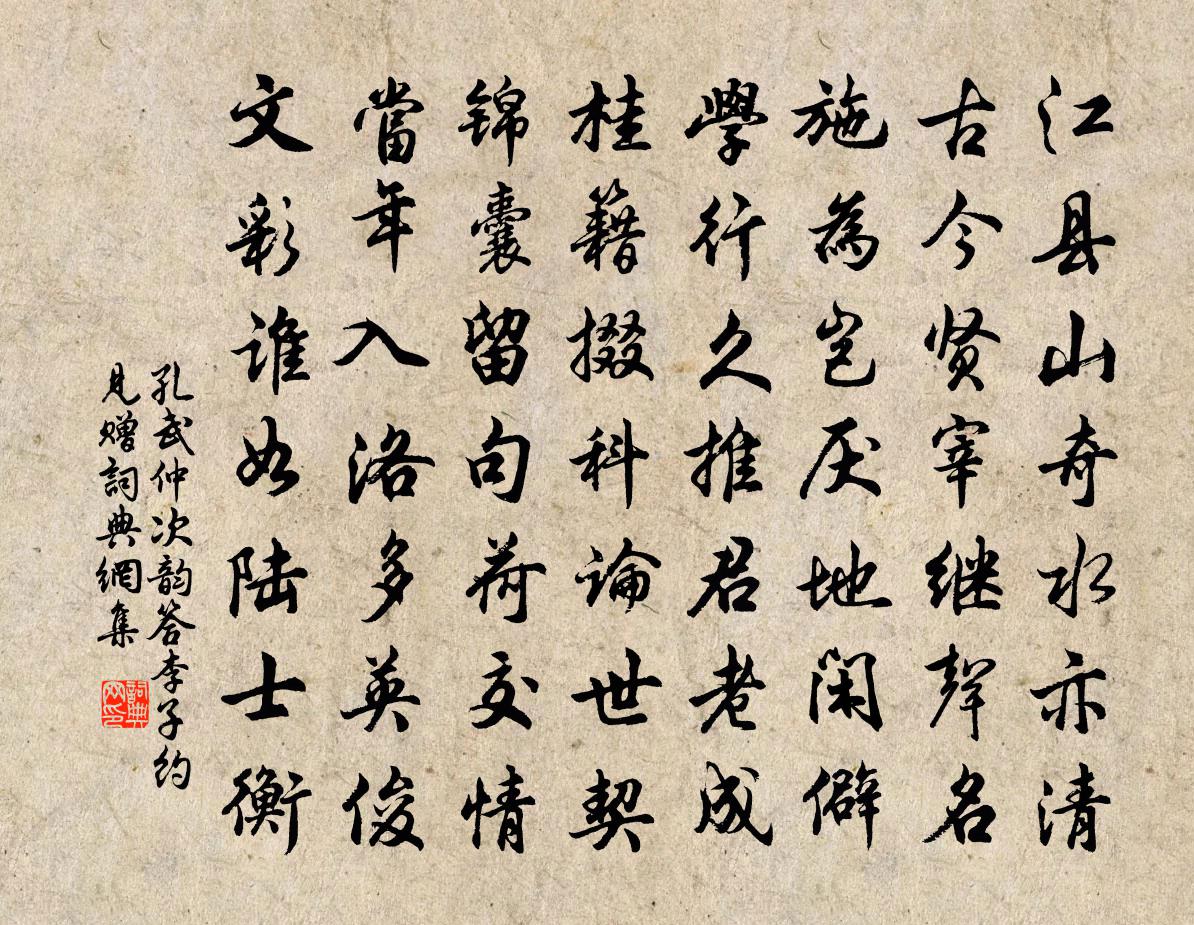 江县山奇水亦清
古今贤宰继聲名
施為岂厌地闲僻
學行久推君老成
桂籍掇科論世契
锦囊留句荷交情
當年入洛多英俊
文彩谁如陆士衡
孔武仲次韵答李子约
见赠詞典網集
詞典网印